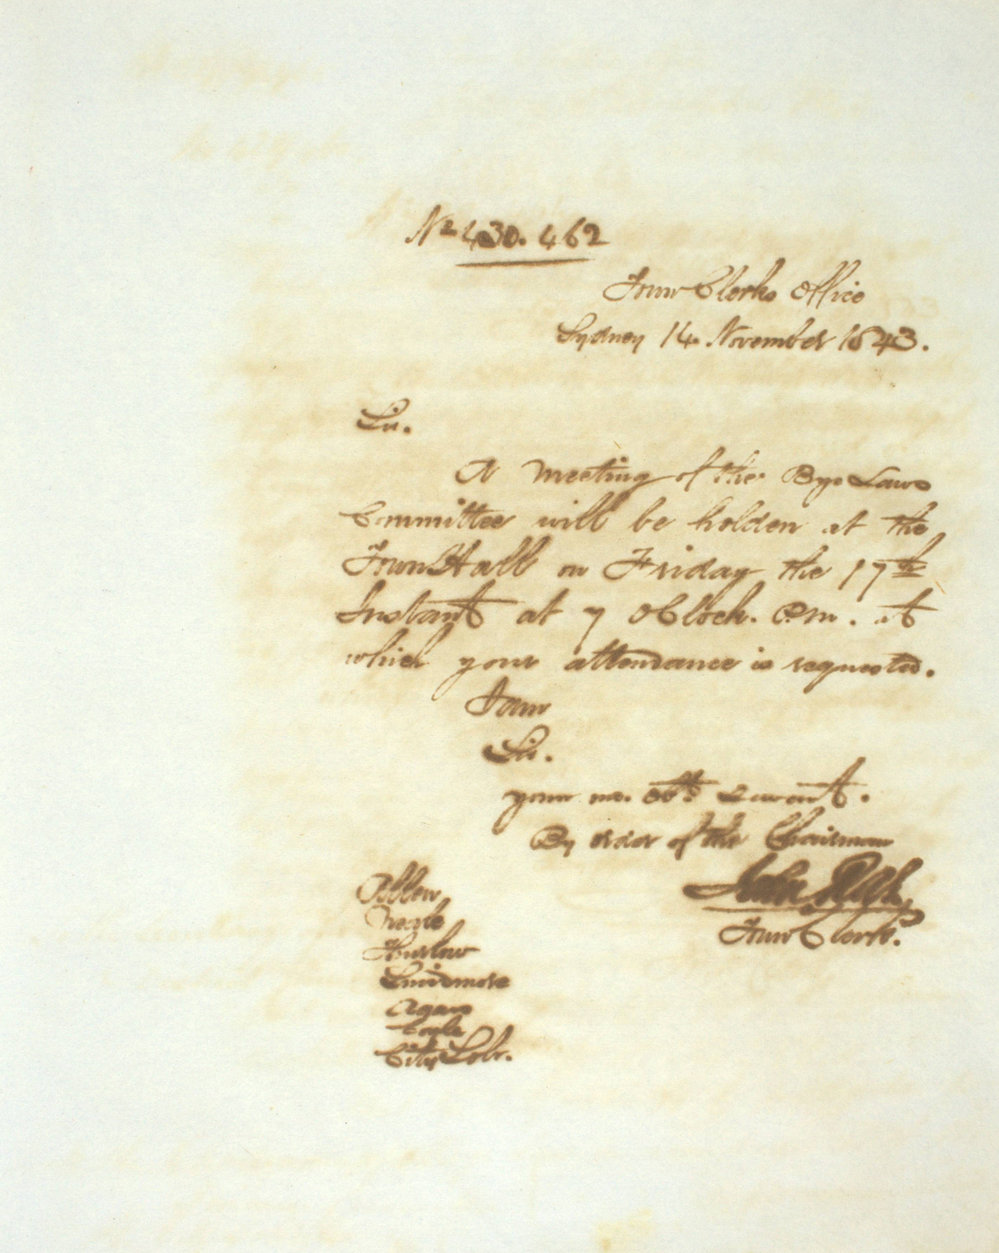 No 430. 462
Town Clerks Office
Sydney 14. November 1843.
Sir.
A Meeting of the Bye Laws
Committee will be holden at the
Town Hall on Friday the 17th
Instant at 7 OClock. P.m. at
which your attendance is requested.
I am
Sir.
your mo. obt. Servant.
By order of the Chairman
John
Town Clerk.
Neale
Thurlow
Smidmore
Agars
Coyle
City Solr.